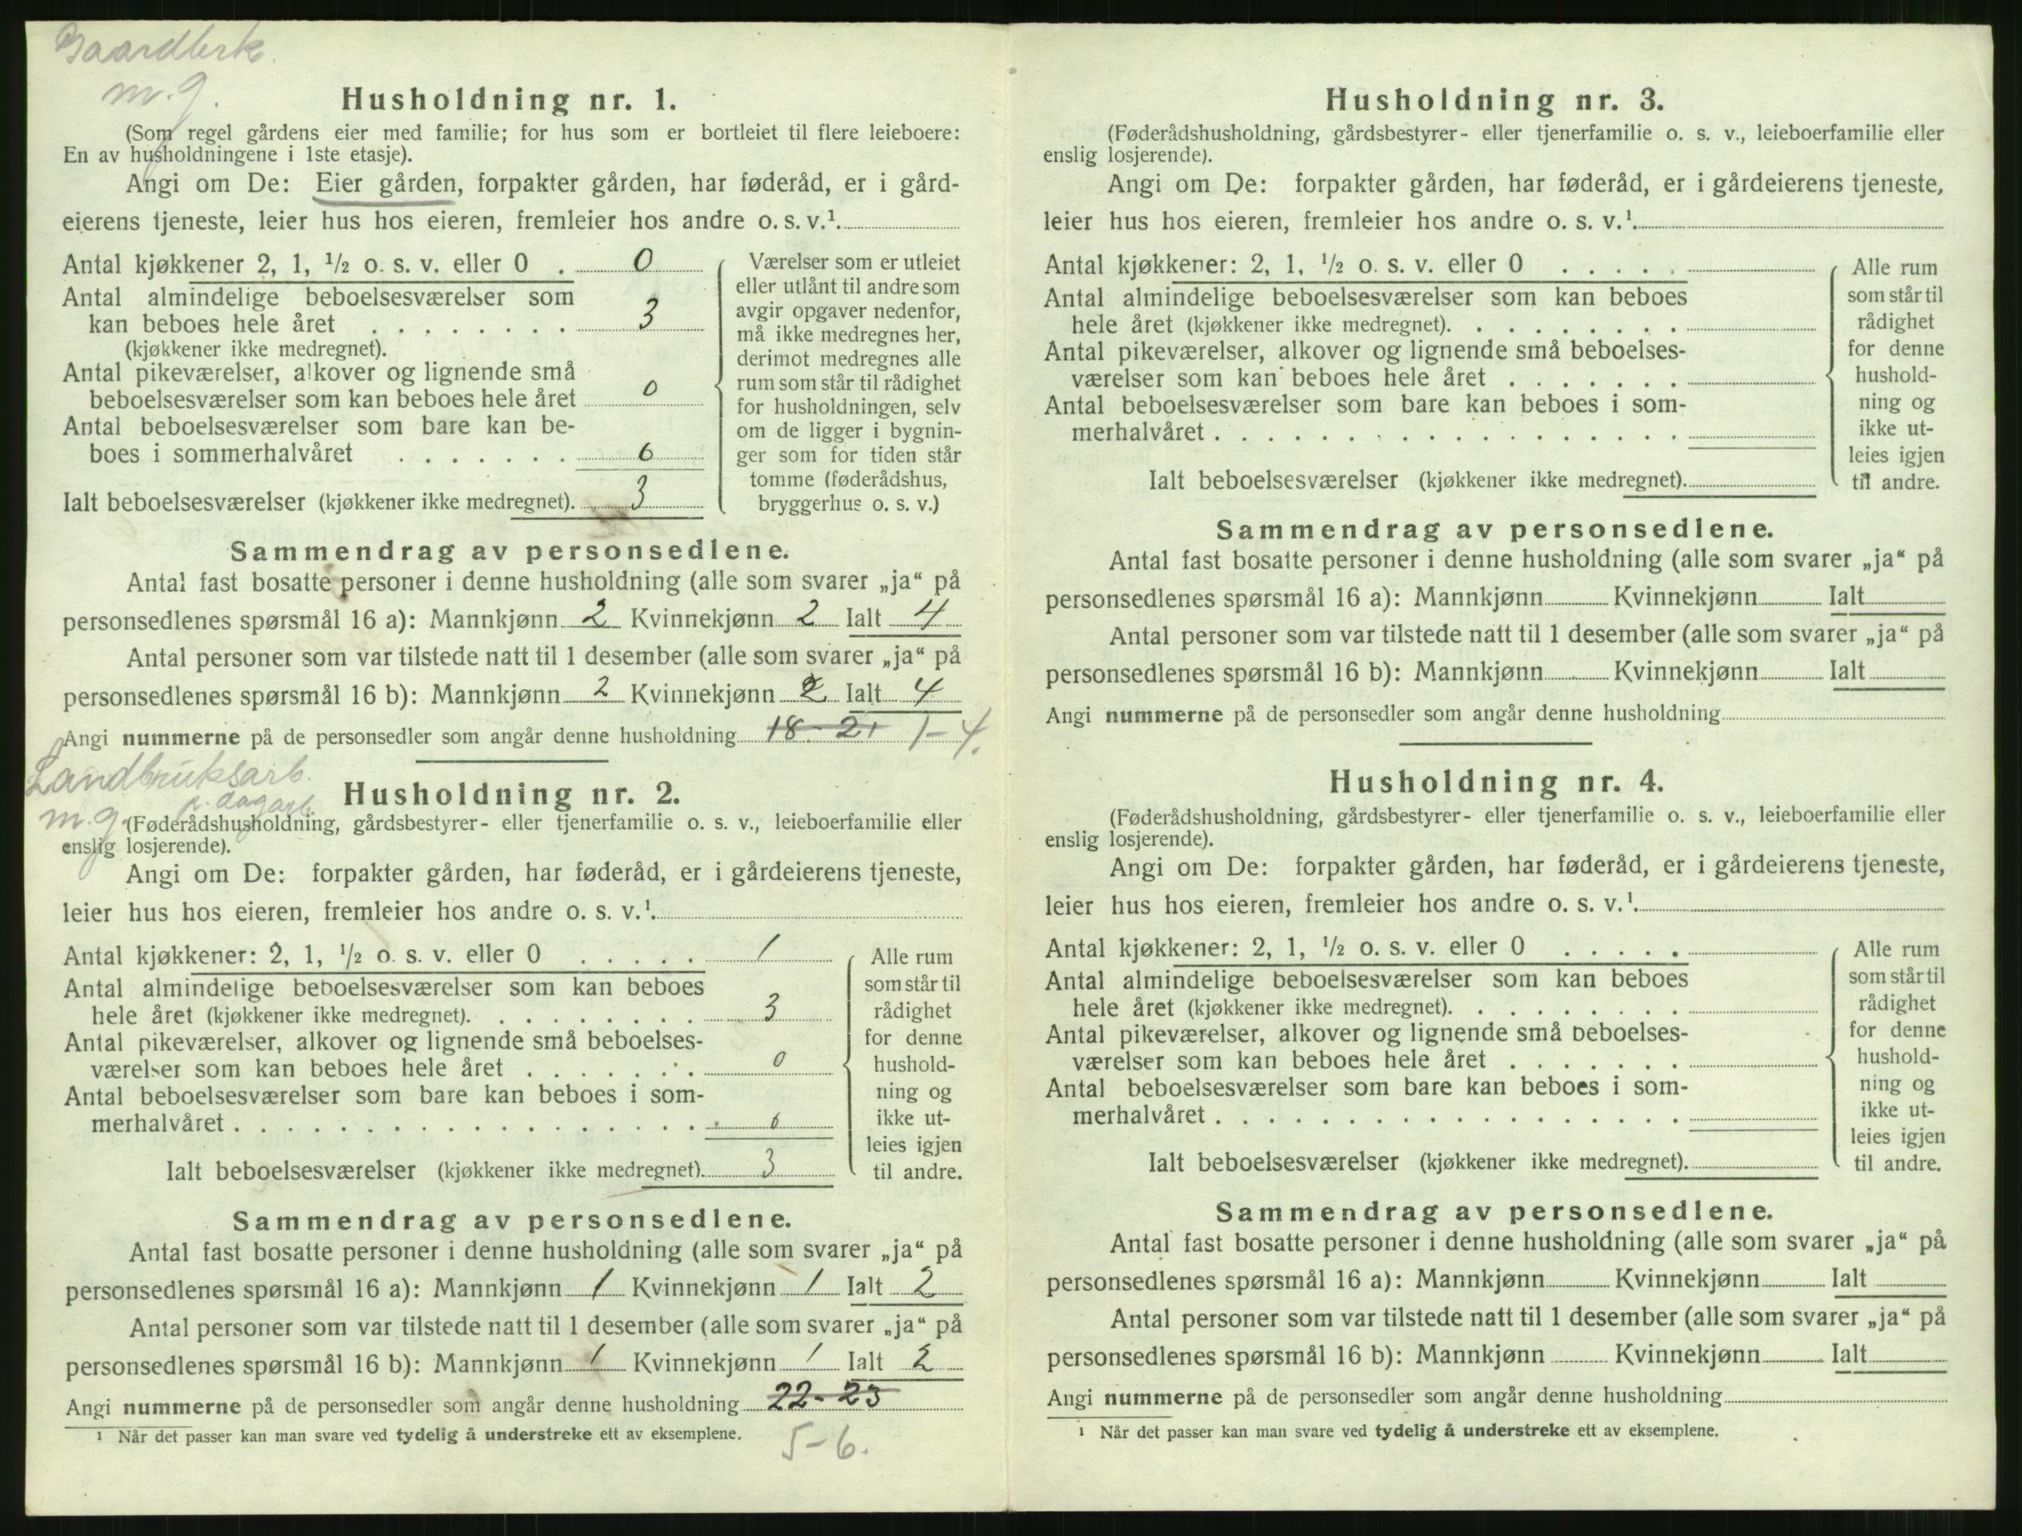 Gaardbrk.
m.g.
Husholdning nr. 1.
(Som regel gårdens eier med familie; for hus som er bortleiet til flere leieboere:
En av husholdningene i 1ste etasje).
Angi om De: Eier gården, forpakter gården, har føderåd, er i gård-
eierens tjeneste, leier hus hos eieren, fremleier hos andre o. s. v.¹.
Antal kjøkkener 2, 1, ½ o. s. v. eller 0 . 0
Antal almindelige beboelsesværelser som
kan beboes hele året . . . . . . . . 3
(kjøkkener ikke medregnet).
Antal pikeværelser, alkover og lignende små
beboelsesværelser som kan beboes hele året 0
Antal beboelsesværelser som bare kan be-
boes i sommerhalvåret . . . . . . . 0
Ialt beboelsesværelser (kjøkkener ikke medregnet). 3
Værelser som er utleiet
eller utlånt til andre som
avgir opgaver nedenfor,
må ikke medregnes her,
derimot medregnes alle
rum som står til rådighet
for husholdningen, selv
om de ligger i bygnin-
ger som for tiden står
tomme (føderådshus,
bryggerhus o. s. v.)
Sammendrag av personsedlene.
Antal fast bosatte personer i denne husholdning (alle som svarer „ja“ på
personsedlenes spørsmål 16 a): Mannkjønn 2 Kvinnekjønn 2 Ialt 4
Antal personer som var tilstede natt til 1 desember (alle som svarer „ja“ på
personsedlenes spørsmål 16 b): Mannkjønn 2 Kvinnekjønn 2 Ialt 4
Angi nummerne på de personsedler som angår denne husholdning 18-21 1-4.
Landbruksarb.
m.g. p. dagarb.
Husholdning nr. 2.
(Føderådshusholdning, gårdsbestyrer- eller tjenerfamilie o. s. v., leieboerfamilie eller
enslig losjerende).
Angi om De: forpakter gården, har føderåd, er i gårdeierens tjeneste,
leier hus hos eieren, fremleier hos andre o. s. v.¹.
Antal kjøkkener: 2, 1, ½ o. s. v. eller 0 . . . . . 1
Antal almindelige beboelsesværelser som kan beboes
hele året (kjøkkener ikke medregnet). . . . . . . . . 3
Antal pikeværelser, alkover og lignende små beboelses-
værelser som kan beboes hele året . . . . . . . 0
Antal beboelsesværelser som bare kan beboes i som-
merhalvåret . . . . . . . . . . . . . . . . . . 0
Ialt beboelsesværelser (kjøkkener ikke medregnet). 3
Alle rum
som står til
rådighet
for denne
hushold-
ning og
ikke ut-
leies igjen
til andre.
Sammendrag av personsedlene.
Antal fast bosatte personer i denne husholdning (alle som svarer „ja“ på
personsedlenes spørsmål 16 a): Mannkjønn 1 Kvinnekjønn 1 Ialt 2
Antal personer som var tilstede natt til 1 desember (alle som svarer „ja“ på
personsedlenes spørsmål 16 b): Mannkjønn 1 Kvinnekjønn 1 Ialt 2
Angi nummerne på de personsedler som angår denne husholdning 22-23
¹ Når det passer kan man svare ved tydelig å understreke ett av eksemplene.
5-6.
Husholdning nr. 3.
(Føderådshusholdning, gårdsbestyrer- eller tjenerfamilie o. s. v., leieboerfamilie eller
enslig losjerende).
Angi om De: forpakter gården, har føderåd, er i gårdeierens tjeneste,
leier hus hos eieren, fremleier hos andre o. s. v.¹.
Antal kjøkkener: 2, 1, ½ o. s. v. eller 0 . . . . .
Antal almindelige beboelsesværelser som kan beboes
hele året (kjøkkener ikke medregnet). . . . . . . . .
Antal pikeværelser, alkover og lignende små beboelses-
værelser som kan beboes hele året . . . . . . .
Antal beboelsesværelser som bare kan beboes i som-
merhalvåret . . . . . . . . . . . . . . . . . .
Ialt beboelsesværelser (kjøkkener ikke medregnet).
Alle rum
som står til
rådighet
for denne
hushold-
ning og
ikke ut-
leies igjen
til andre.
Sammendrag av personsedlene.
Antal fast bosatte personer i denne husholdning (alle som svarer „ja“ på
personsedlenes spørsmål 16 a): Mannkjønn Kvinnekjønn Ialt
Antal personer som var tilstede natt til 1 desember (alle som svarer „ja“ på
personsedlenes spørsmål 16 b): Mannkjønn Kvinnekjønn Ialt
Angi nummerne på de personsedler som angår denne husholdning
Husholdning nr. 4.
(Føderådshusholdning, gårdsbestyrer- eller tjenerfamilie o. s. v., leieboerfamilie eller
enslig losjerende).
Angi om De: forpakter gården, har føderåd, er i gårdeierens tjeneste,
leier hus hos eieren, fremleier hos andre o. s. v.¹.
Antal kjøkkener: 2, 1, ½ o. s. v. eller 0 . . . . .
Antal almindelige beboelsesværelser som kan beboes
hele året (kjøkkener ikke medregnet). . . . . . . . .
Antal pikeværelser, alkover og lignende små beboelses-
værelser som kan beboes hele året . . . . . . .
Antal beboelsesværelser som bare kan beboes i som-
merhalvåret . . . . . . . . . . . . . . . . . .
Ialt beboelsesværelser (kjøkkener ikke medregnet).
Alle rum
som står til
rådighet
for denne
hushold-
ning og
ikke ut-
leies igjen
til andre.
Sammendrag av personsedlene.
Antal fast bosatte personer i denne husholdning (alle som svarer „ja“ på
personsedlenes spørsmål 16 a): Mannkjønn Kvinnekjønn Ialt
Antal personer som var tilstede natt til 1 desember (alle som svarer „ja“ på
personsedlenes spørsmål 16 b): Mannkjønn Kvinnekjønn Ialt
Angi nummerne på de personsedler som angår denne husholdning
¹ Når det passer kan man svare ved tydelig å understreke ett av eksemplene.